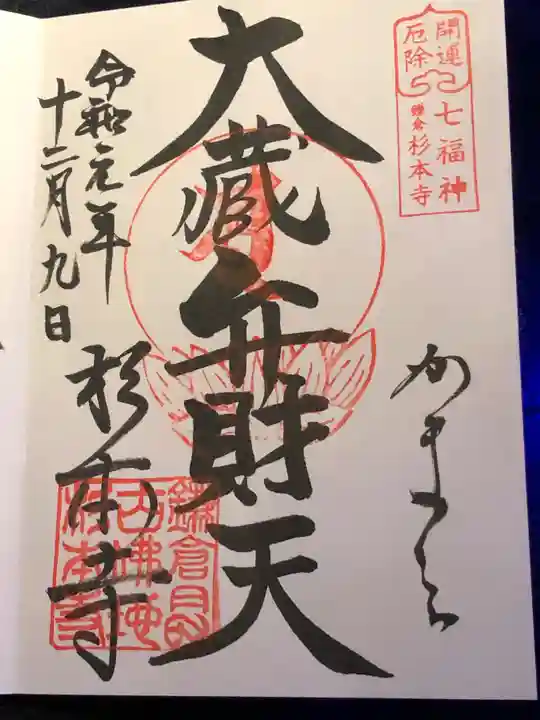 開運
厄除
七福神
鎌倉杉本寺
かまくら
大蔵弁財天
令和元年
十二月九日
杉本寺
杉本寺